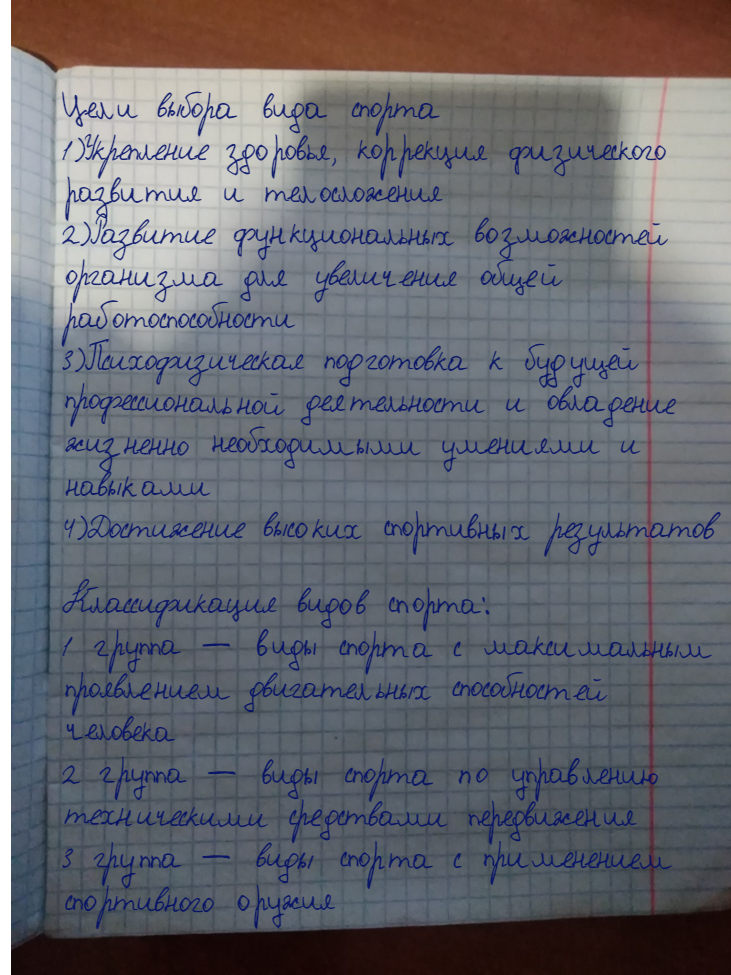 Цели выбора вида спорта
1)Укрепление здоровья, коррекция физического
развития и телосложения
2)Развитие функциональных возможностей
организма для увеличения общей
работоспособности
3)Психофизическая подготовка к будущей
профессиональной деятельности и овладение
жизненно необходимыми умениями и
навыками
4)Достижение высоких спортивных результатов
Классификация видов спорта:
1 группа — виды спорта с максимальным
проявлением двигательных способностей
человека
2 группа — виды спорта по управлению
техническими средствами передвижения
3 группа — виды спорта с применением
спортивного оружия